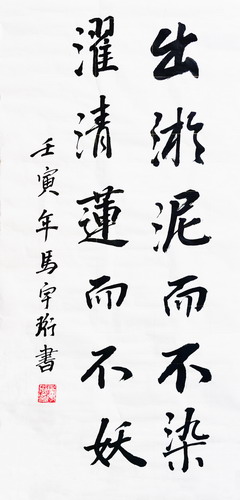 出淤泥而不染
濯清蓮而不妖
壬寅年馬宇珩書